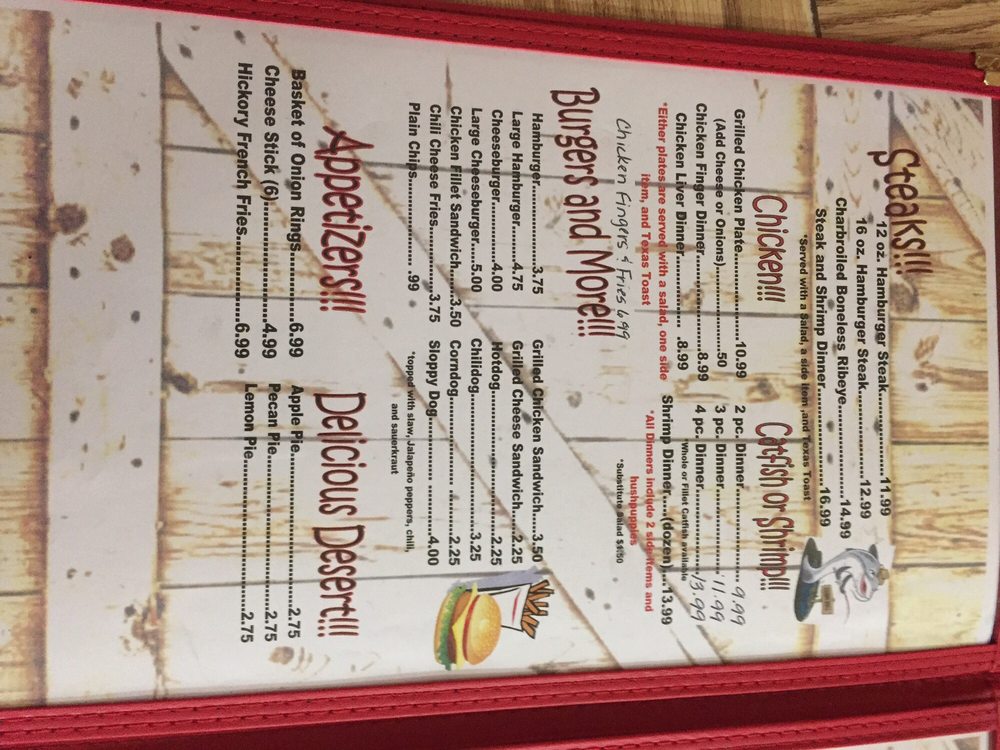 Steaks!!!
12 oz. Hamburger Steak....................11.99
16 oz. Hamburger Steak...................12.99
Charbroiled Boneless Ribeye...............14.99
Steak and Shrimp Dinner....................16.99
*Served with a Salad, a side item ,and Texas Toast
Chicken!!!
Grilled Chicken Plate.................10.99
(Add Cheese or Onions)...............50
Chicken Finger Dinner.................8.99
Chicken Liver Dinner.............. .8.99
*Either plates are served with a salad, one side
item, and Texas Toast
Chicken Fingers & Fries 6.99
Catfish or Shrimp!!!
2 pc. Dinner............... 9.99
3 pc. Dinner............... 11.99
4 pc. Dinner............... 13.99
Whole or Fillet Catfish available
Shrimp Dinner.....(dozen)....13.99
*All Dinners include 2 side items and
hushpuppies
*Substitute Salad $1.50
Burgers and More!!!
Hamburger................3.75
Large Hamburger........4.75
Cheeseburger............4.00
Large Cheeseburger.....5.00
Chicken Fillet Sandwich.....3.50
Chili Cheese Fries............3.75
Plain Chips.................. .99
Grilled Chicken Sandwich.....3.50
Grilled Cheese Sandwich.....2.25
Hotdog.......................2.25
Chilidog......................3.25
Corndog...................... 2.25
Sloppy Dog........... ........4.00
*topped with slaw, Jalapeño peppers, chili,
and sauerkraut
Appetizers!!!
Basket of Onion Rings.............6.99
Cheese Stick (6)......................4.99
Hickory French Fries...............6.99
Delicious Desert!!!
Apple Pie..........................2.75
Pecan Pie..........................2.75
Lemon Pie..........................2.75